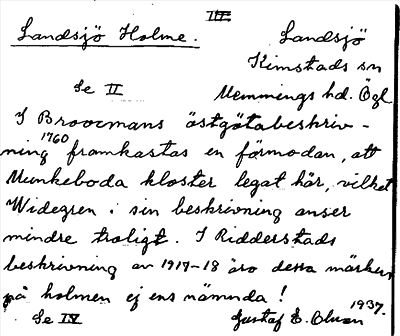 III
Landsjö Holme. Landsjö
Kimstads sn
Se II Memmings hd. Ögl
I Broocmans östgötabeskriv-
ning 1760 framkastas en förmodan, att
Munkeboda kloster legat här, vilket
Widegren i sin beskrivning anser
mindre troligt. I Ridderstads
beskrivning av 1917-18 äro dessa märken
på holmen ej ens nämnda!
Se IV Gustaf E. 1937.